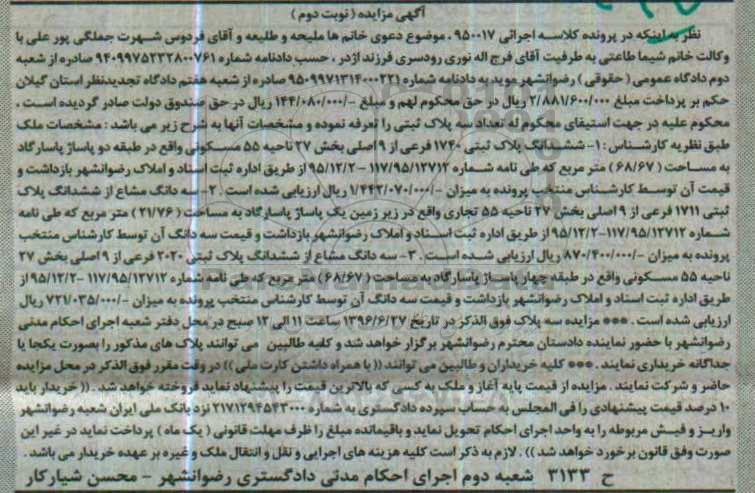 آگهی مزایده ( نوبت دوم )
نظر به اینکه در پرونده کلاسه اجرائی ۹۵۰۰۱۷ . موضوع دعوی خانم ها ملیحه و طلیعه و آقای فردوس شهرت جملگی پور علی با
وکالت خانم شیما طاعتی به طرفیت آقای فرج اله نوری رودسری فرزند اژدر ، حسب دادنامه شماره ۹۴۰۹۹۷۵۲۳۲۸۰۰۷۶۱ صادره از شعبه
دوم دادگاه عمومی ( حقوقی ) رضوانشهر موید به دادنامه شماره ۹۵۰۹۹۷۱۳۱۴۰۰۰۲۲۱ صادره از شعبه هفتم دادگاه تجدیدنظر استان گیلان
حکم بر پرداخت مبلغ ۲/۸۸۱/۶۰۰/۰۰۰ ریال در حق محکوم لهم و مبلغ -/۱۴۴/۰۸۰/۰۰۰ ریال در حق صندوق دولت صادر گردیده است .
محکوم علیه در جهت استیفای محکوم له تعداد سه پلاک ثبتی را تعرفه نموده و مشخصات آنها به شرح زیر می باشد : مشخصات ملک
طبق نظریه کارشناس : ۱- ششدانگ پلاک ثبتی ۱۷۴۰ فرعی از ۹ اصلی بخش ۲۷ ناحیه ۵۵ مسکونی واقع در طبقه دو پاساژ پاسارگاد
به مساحت ( ۶۸/۶۷ ) متر مربع که طی نامه شماره ۱۱۷/۹۵/۱۲۷۱۲ -۹۵/۱۲/۲ از طریق اداره ثبت اسناد و املاک رضوانشهر بازداشت و
قیمت آن توسط کارشناس منتخب پرونده به میزان -/۱/۴۴۲/۰۷۰/۰۰۰ ریال ارزیابی شده است . ۲- سه دانگ مشاع از ششدانگ پلاک
ثبتی ۱۷۱۱ فرعی از ۹ اصلی بخش ۲۷ ناحیه ۵۵ تجاری واقع در زیر زمین یک پاساژ پاسارگاد به مساحت ( ۲۱/۷۶ ) متر مربع که طی نامه
شماره ۱۱۷/۹۵/۱۲۷۱۲-۹۵/۱۲/۲ از طریق اداره ثبت اسناد و املاک رضوانشهر بازداشت و قیمت سه دانگ آن توسط کارشناس منتخب
پرونده به میزان -/۸۷۰/۴۰۰/۰۰۰ ریال ارزیابی شده است . ۳- سه دانگ مشاع از ششدانگ پلاک ثبتی ۲۰۲۰ فرعی از ۹ اصلی بخش ۲۷
ناحیه ۵۵ مسکونی واقع در طبقه چهار پاساژ پاسارگاد به مساحت ( ۶۸/۶۷ ) متر مربع که طی نامه شماره ۱۱۷/۹۵/۱۲۷۱۲ -۹۵/۱۲/۲ از
طریق اداره ثبت اسناد و املاک رضوانشهر بازداشت و قیمت سه دانگ آن توسط کارشناس منتخب پرونده به میزان -/۷۲۱/۰۳۵/۰۰۰ ریال
ارزیابی شده است . *** مزایده سه پلاک فوق الذکر در تاریخ ۱۳۹۶/۶/۲۷ ساعت ۱۱ الی ۱۲ صبح در محل دفتر شعبه اجرای احکام مدنی
رضوانشهر با حضور نماینده دادستان محترم رضوانشهر برگزار خواهد شد و کلیه طالبین می توانند پلاک های مذکور را بصورت یکجا یا
جداگانه خریداری نمایند . *** کلیه خریداران و طالبین می توانند (( با همراه داشتن کارت ملی )) در وقت مقرر فوق الذکر در محل مزایده
حاضر و شرکت نمایند . مزایده از قیمت پایه آغاز و ملک به کسی که بالاترین قیمت را پیشنهاد نماید فروخته خواهد شد . (( خریدار باید
۱۰ درصد قیمت پیشنهادی را فی المجلس به حساب سپرده دادگستری به شماره ۲۱۷۱۲۹۴۵۴۳۰۰۰ نزد بانک ملی ایران شعبه رضوانشهر
واریز و فیش مربوطه را به واحد اجرای احکام تحویل نماید و باقیمانده مبلغ را ظرف مهلت قانونی ( یک ماه ) پرداخت نماید در غیر این
صورت وفق قانون برخورد خواهد شد )) . لازم به ذکر است کلیه هزینه های اجرایی و نقل و انتقال ملک و غیره بر عهده خریدار می باشد .
ح ۳۱۳۳ شعبه دوم اجرای احکام مدنی دادگستری رضوانشهر - محسن شیارکار